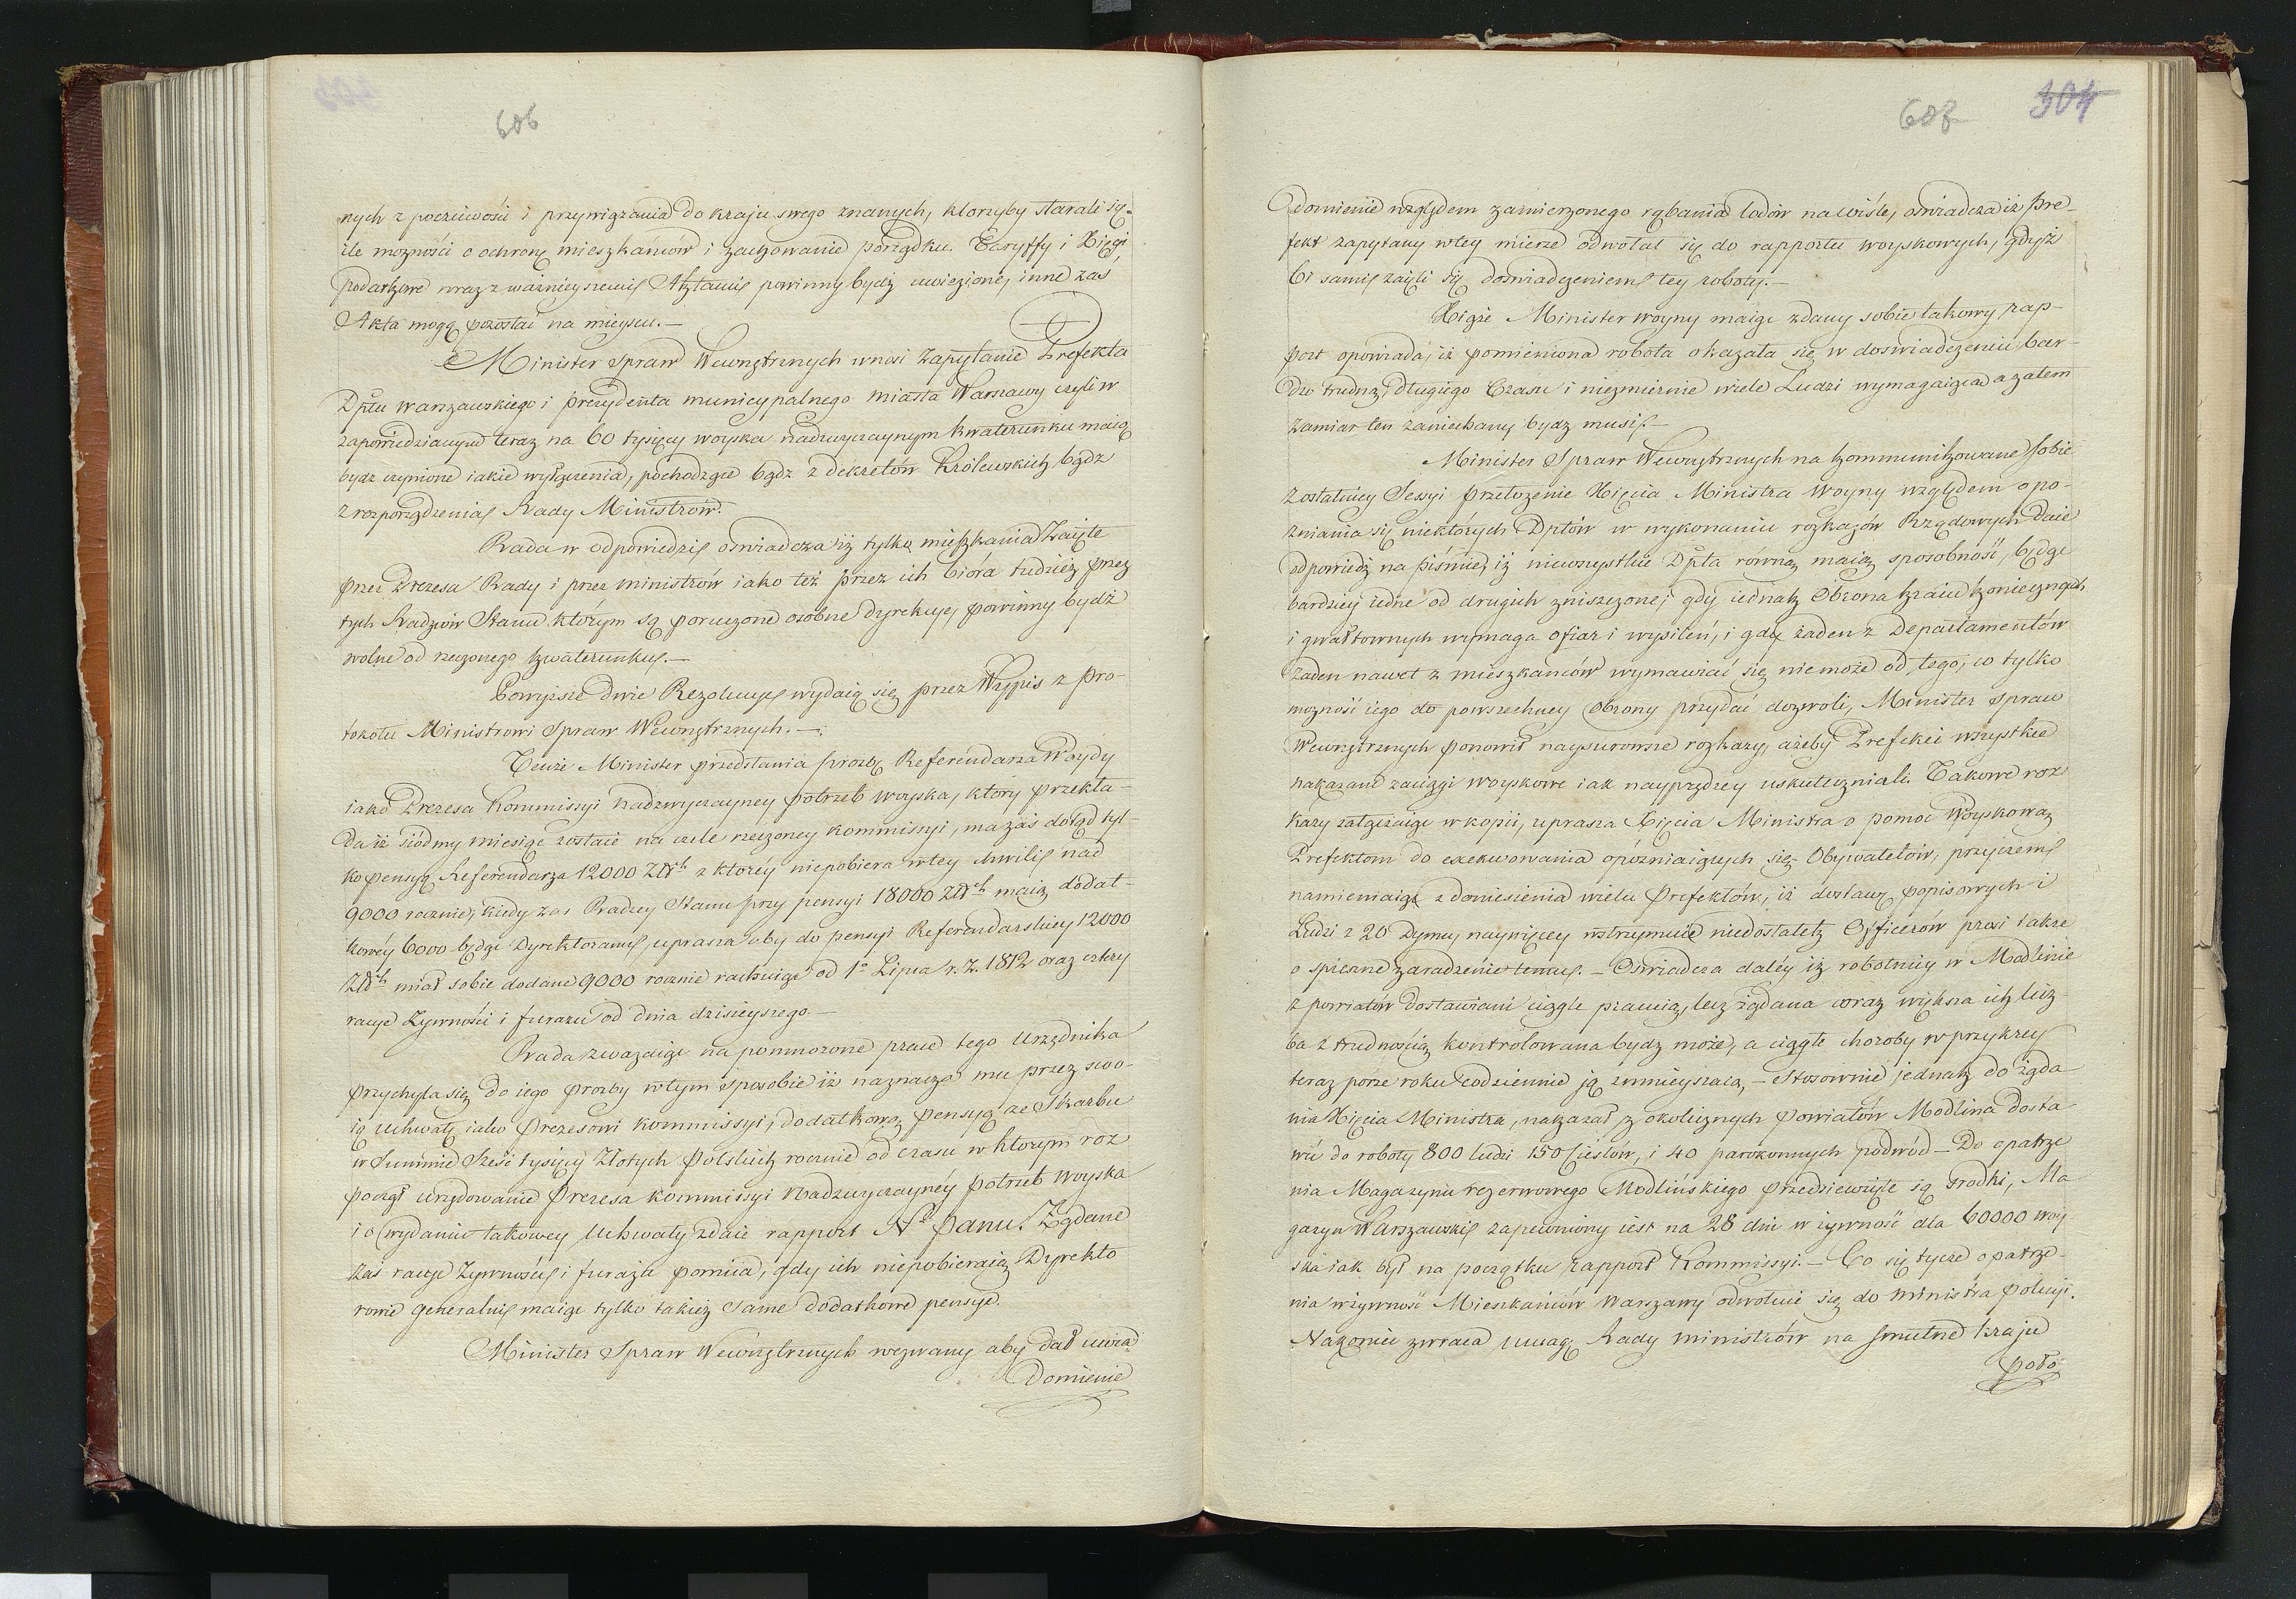 606
nych z poczciwości i przywiązania do kraju swego znanych, ktorzyby starali się
ile możności o ochronę mieszkańców i zachowanie porządku. Taryffy i Xięgi
podatkowe wraz z ważnieyszemi Aktami powinny bydź uwiezione, inne zas
Akta mogą pozostać na mieyscu. —
Minister Spraw Wewnętrznych wnosi Zapytanie Prefekta
Dptu warszawskiego i prezydenta municypalnego miasta Warszawy czyli w
zapowiedzianym teraz na 60 tysięcy woyska nadzwyczaynym kwaterunku maią
bydz czynione iakie wyłączenia, pochodzące bądz z dekretów Królewskich bądz
z rozporządzenia Rady Ministrów.
Rada w odpowiedzi oswiadcza iż tylko mieszkania Zaięte
przez Prezesa Rady i przez ministrów iako też przez ich bióra tudzież przez
tych Radzców Stanu którym są poruczone osobne dyrekcye, powinny bydź
wolne od rzeczonego kwaterunku. —
Powyższe dwie Rezolucye wydaią się przez Wypis z pro-
tokołu Ministrowi Spraw Wewnętrznych. —
Tenże Minister przedstawia prozbę Referendarza Woydy
iako Prezesa Kommissyi nadzwyczayney potrzeb woyska, który przekła-
da iż siódmy miesiąc zostaie na czele rzeczoney kommissyi, ma zaś dotąd tyl-
ko pensyą Referendarza 12000 Złłch z ktoréy niepobiera w tey chwili nad
9000 rocznie, kiedy zas Radzcy Stanu przy pensyi 18000 Złłch maią dodat-
kowéy 6000 będąc Dyrektorami, uprasza aby do pensyi Referendarskiey 12000
Złłch miał sobie dodane 9000 rocznie rachuiąc od 1o Lipca r. z. 1812 oraz cztery
racye Żywności i furażu od dnia dzisieyszego. —
Rada zważaiąc na pomnożone prace tego Urzędnika
przychyla się do iego prozby w tym sposobie iż naznacza mu przez swo-
ią uchwałę iako Prezesowi Kommissyi, dodatkową pensyą ze Skarbu
w Summie Sześć tysięcy Złotych Polskich rocznie od czasu w ktorym roz
począł urzędowanie Prezesa kommissyi Nadzwyczaynéy potrzeb woyska
i o wydaniu takowey Uchwały zdaie rapport Nu Panu. Żądane
zaś racye Żywności i furażu pomiia, gdy ich niepobieraią Dyrekto
rowie generalni maiąc tylko takież same dodatkowe pensye.
Minister Spraw Wewnętrznych wezwany aby dał uwia
domienie
607 304
domienie względem zamierzonego rąbania lodów na wiśle, oswiadcza iż Pre-
fekt zapytany w tey mierze odwołał się do rapportu woyskowych, gdyż
Ci sami zaięli się doswiadczeniem tey roboty. —
Xiąże Minister woyny maiąc zdany sobie takowy rap-
port opowiada, iż pomieniona robota okazała się w doswiadczeniu bar-
dzo trudną, długiego Czasu i niezmiernie wiele Ludzi wymagaiącą a zatem
zamiar ten zaniechany bydz musi. —
Minister Spraw Wewnętrznych na kommunikowane sobie
z ostatniey Sessyi przełożenie Xięcia Ministra Woyny względem opo-
zniania się niektórych Dptów w wykonaniu rozkazów Rządowych daie
odpowiedź na piśmie, iż niewszystkie Dpta równą maią sposobność, będąc
bardziey iedne od drugich zniszczone; gdy iednak Obrona kraiu koniecznych
i gwałtownych wymaga ofiar i wysileń, i gdy żaden z Departamentów
żaden nawet z mieszkańców wymawiać się nie może od tego, co tylko
możność iego do powszechney Obrony przydać dozwoli, Minister Spraw
Wewnętrznych ponowił naysurowsze rozkazy, ażeby Prefekci wszystkie
nakazane zaciągi woyskowe iak nayprędzey uskuteczniali. Takowe roz
kazy załączaiąc w kopii, uprasza Xięcia Ministra o pomoc Woyskową
Prefektom do exekwowania opóźniaiących się Obywatelów, przyczem
namieniaiąc z doniesienia wielu Prefektów, iż dostawę popisowych i
Ludzi z 20 dymu, naywięcey wstrzymuie niedostatek Officerów prosi także
o spieszne zaradzenie temu. — Oswiadcza daléy iż robotnicy w Modlinie
z powiatów dostawiani ciągle pracuią, lecz żądana coraz większa ich licz-
ba z trudnością kontrolowana bydz może, a ciągłe choroby w przykrey
teraz porze roku codziennie ją zmnieyszaią, — Stosownie jednak do żąda
nia Xięcia Ministra, nakazał z okolicznych powiatów Modlina dosta
wić do roboty 800 ludzi 150 Cieslów, i 40 parokonnych podwód — Do opatrze
nia Magazynu rezerwowego Modlińskiego przedsiewzięte są srodki, Ma
gazyn Warszawski zapewniony iest na 28 dni w żywność dla 60000 woy
ska iak był na początku rapport Kommissyi. — Co się tycze opatrze-
nia w żywność Mieszkańców Warszawy odwołuie się do Ministra policyi.
Nakoniec zwraca uwagę Rady ministrów na smutne kraju
poło-